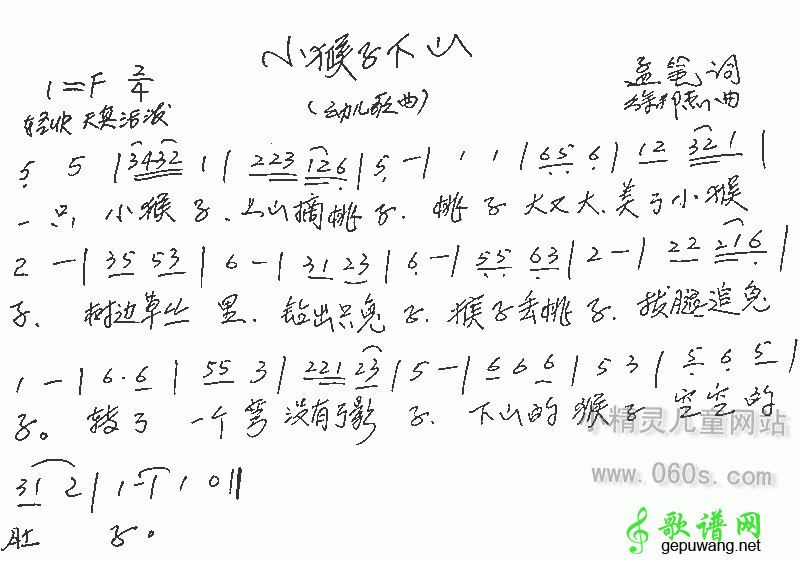 小猴子下山
1=F 2/4
(幼儿歌曲)
孟笔词
徐邦杰曲
轻快 天真活泼
5 5 | 3432 1 | 223 126 | 5 - | 1 1 | 65 6 | 12 321 |
一只 小猴子、上山摘桃子. 桃子大又大、美了小猴
2 - | 35 53 | 6 - | 31 23 | 6 - | 55 63 | 2 - | 22 216 |
子、树边草丛里、钻出只兔子. 猴子丢桃子. 拔腿追兔
1 - | 6·6 | 55 3 | 221 23 | 5 - | 6 6 6 | 5 3 | 5 6 5 |
子。转了一个弯没有了影子. 下山的猴子空空的
31 2 | 1 - | 1 0 ||
肚子。
精灵儿童网站
www.060s.com
歌谱网
gepuwang.net